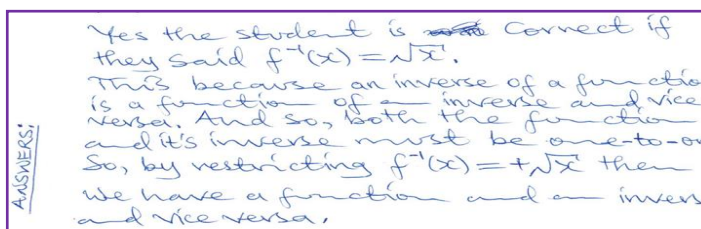 ANSWERS:
Yes the student is correct if
they said f⁻¹(x) = √x.
This because an inverse of a functio
is a function of an inverse and vice
versa. And so, both the function
and it's inverse must be one-to-on
So, by restricting f⁻¹(x) = +√x then
we have a function and an invers
and vice versa.